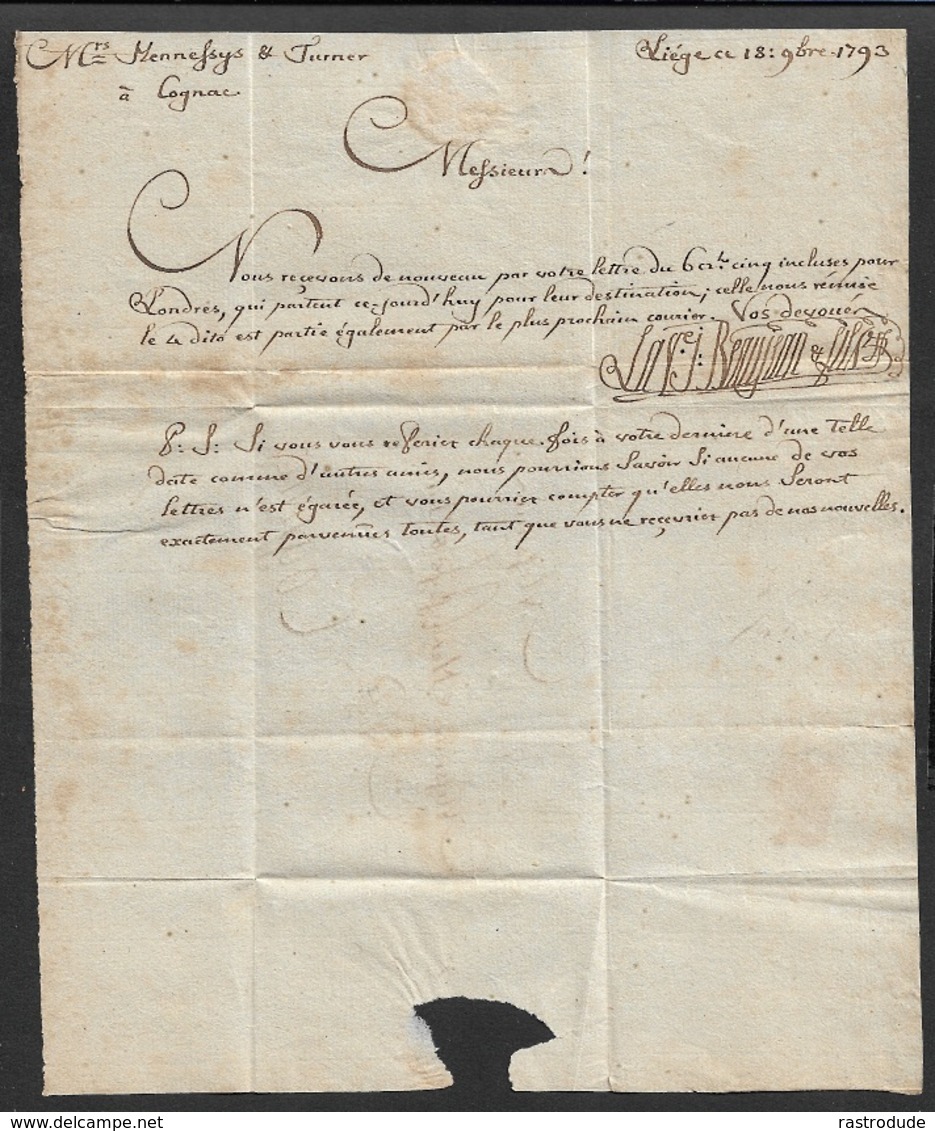 Mrs Hennessys & Turner
Liége ce 18: 9bre 1793
à Cognac
Messieurs!
Nous reçevons de nouveau par votre lettre du 6 crt cinq incluses pour
Londres, qui partent ce-jourd'huy pour leur destination; celle nous rémise
le 4 dito est partie également par le plus prochain courier. Vos devoués
La Ve J: & fils
P: S: Si vous vous referiez chaque fois à votre derniere d'une telle
date comme d'autres amis, nous pourrions Savoir Si aucune de vos
lettres n'est égarée, et vous pourriez compter qu'elles nous Seront
exactement parvenües toutes, tant que vous ne reçevriez pas de nos nouvelles.
rastrodude